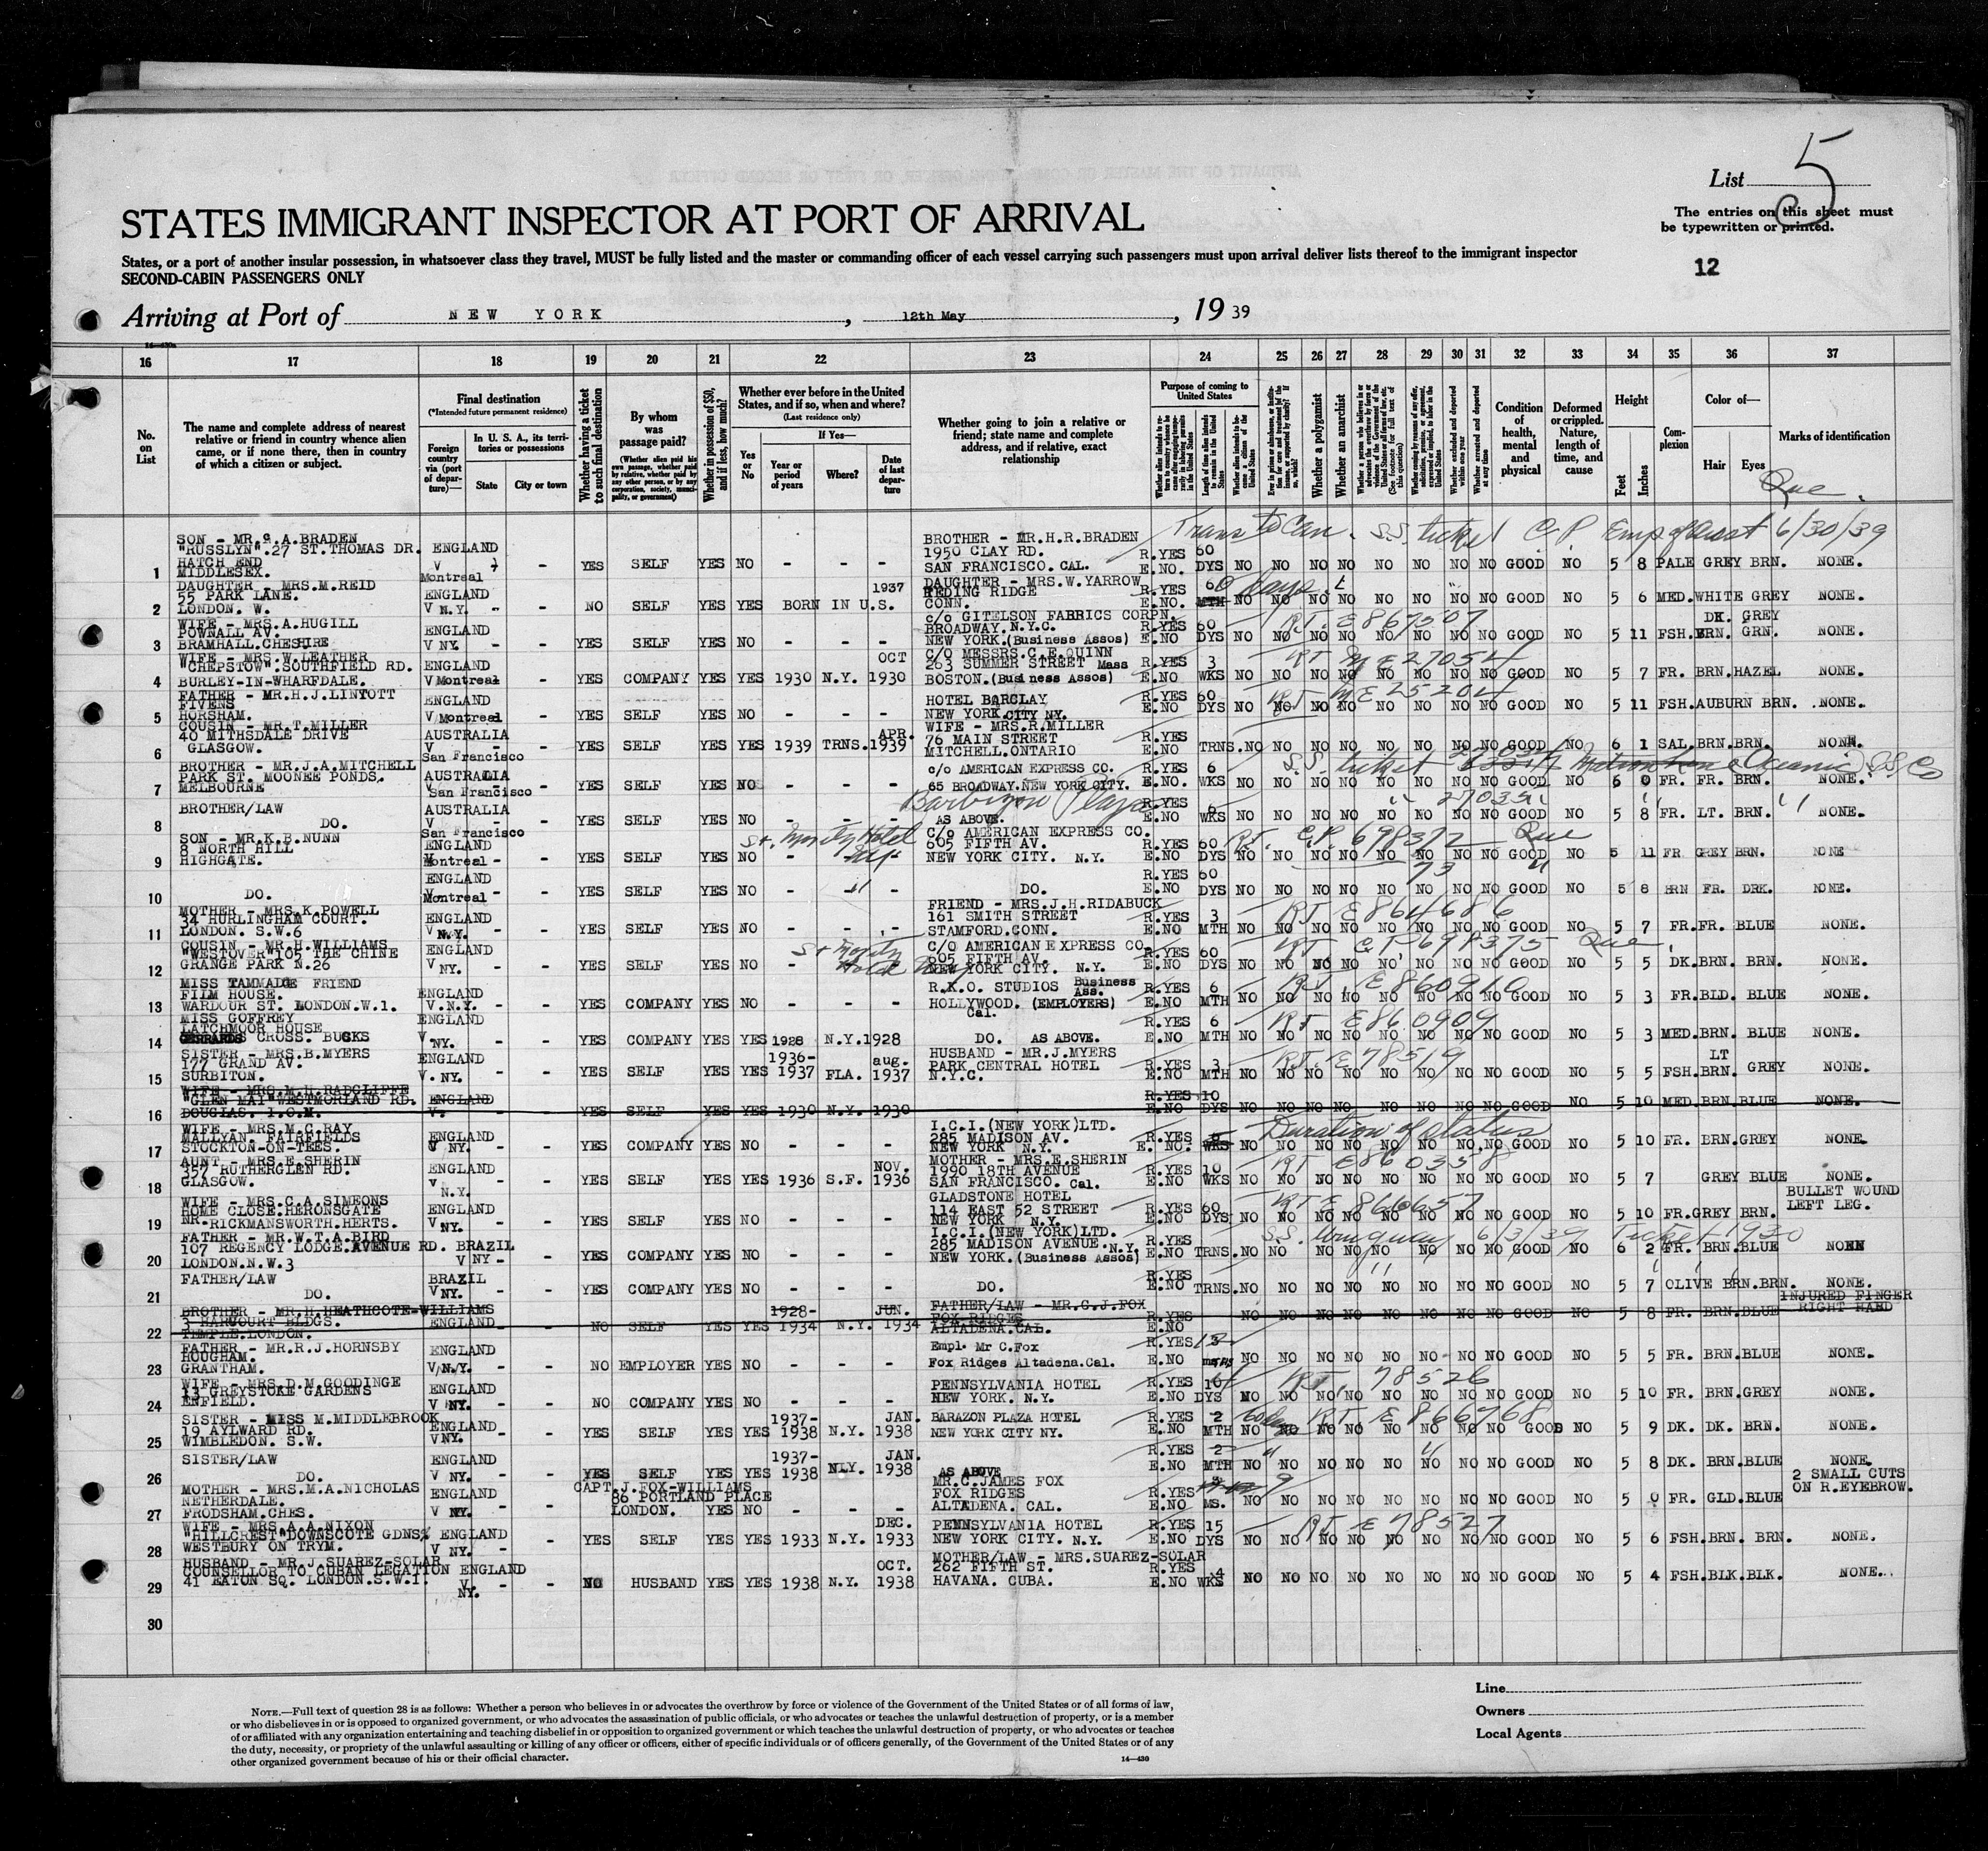 List 5
STATES IMMIGRANT INSPECTOR AT PORT OF ARRIVAL
The entries on this sheet must
be typewritten or printed.
States, or a port of another insular possession, in whatsoever class they travel, MUST be fully listed and the master or commanding officer of each vessel carrying such passengers must upon arrival deliver lists thereof to the immigrant inspector
SECOND-CABIN PASSENGERS ONLY
12
Arriving at Port of NEW YORK, 12th May, 1939
16 17 18 19 20 21 22 23 24 25 26 27 28 29 30 31 32 33 34 35 36 37
No. on List
The name and complete address of nearest relative or friend in country whence alien came, or if none there, then in country of which a citizen or subject.
Final destination
(*Intended future permanent residence)
Foreign country via (port of departure)—
In U. S. A., its territories or possessions
State City or town
Whether having a ticket to such final destination
By whom was passage paid?
(Whether alien paid his own passage, whether paid by relative, whether paid by any other person, or by any corporation, society, municipality, or government)
Whether in possession of $50, and if less, how much?
Whether ever before in the United States, and if so, when and where?
(Last residence only)
Yes or No
If Yes—
Year or period of years Where? Date of last departure
Whether going to join a relative or friend; state name and complete address, and if relative, exact relationship
Purpose of coming to United States
Whether a polygamist
Whether an anarchist
Condition of health, mental and physical
Deformed or crippled. Nature, length of time, and cause
Height
Feet Inches
Complexion
Color of—
Hair Eyes
Marks of identification
Que.
Trans to Can. S.S. ticket C P Emp of Aust 6/30/39
SON - MR. A.BRADEN BROTHER - MR.H.R.BRADEN
"RUSSLYN".27 ST.THOMAS DR. ENGLAND 1950 CLAY RD. R.YES 60
HATCH END V SAN FRANCISCO. CAL. E.NO. DYS
1 MIDDLESEX. Montreal - YES SELF YES NO - - - NO NO NO NO NO NO NO NO GOOD NO 5 8 PALE GREY BRN. NONE.
DAUGHTER - MRS.M.REID 1937 DAUGHTER - MRS.W.YARROW 60 days
55 PARK LANE. ENGLAND REDING RIDGE R.YES
2 LONDON. W. V N.Y. - - NO SELF YES YES BORN IN U.S. CONN. E.NO. MTH NO NO NO NO NO NO NO NO GOOD NO 5 6 MED.WHITE GREY NONE.
WIFE - MRS.A.HUGILL c/o GITELSON FABRICS CORPN. RT. E 867507
POWNALL AV. ENGLAND BROADWAY.N.Y.C. R.YES 60 DK. GREY
3 BRAMHALL.CHESHIRE V NY. - - YES SELF YES NO - - - NEW YORK.(Business Assos) E.NO DYS NO NO NO NO NO NO NO NO GOOD NO 5 11 FSH.BRN. GRN. NONE.
WIFE - MRS.W.LEATHER OCT C/O MESSRS.C.E.QUINN RT ME 27054
"CHEPSTOW".SOUTHFIELD RD. ENGLAND 263 SUMMER STREET Mass R.YES 3
4 BURLEY-IN-WHARFDALE. V Montreal - YES COMPANY YES YES 1930 N.Y. 1930 BOSTON.(Business Assos) E.NO WKS NO NO NO NO NO NO NO NO GOOD NO 5 7 FR. BRN.HAZEL NONE.
FATHER - MR.H.J.LINTOTT RT ME 25204
FIVENS ENGLAND HOTEL BARCLAY R.YES 60
5 HORSHAM. V Montreal - YES SELF YES NO - - - NEW YORK CITY NY. E.NO DYS NO NO NO NO NO NO NO NO GOOD NO 5 11 FSH.AUBURN BRN. NONE.
COUSIN - MR.T.MILLER APR. WIFE - MRS.R.MILLER
40 MITHSDALE DRIVE AUSTRALIA 76 MAIN STREET R.YES
6 GLASGOW. V San Francisco - YES SELF YES YES 1939 TRNS.1939 MITCHELL.ONTARIO E.NO TRNS.NO NO NO NO NO NO NO NO GOOD NO 6 1 SAL.BRN.BRN. NONE.
BROTHER - MR.J.A.MITCHELL S.S. ticket Oceanic S.S. Co
PARK ST. MOONEE PONDS. AUSTRALIA c/o AMERICAN EXPRESS CO. R.YES 6
7 MELBOURNE V San Francisco - YES SELF YES NO - - - 65 BROADWAY.NEW YORK CITY. E.NO. WKS NO NO NO NO NO NO NO NO GOOD NO 6 0 FR. FR. BRN. NONE.
BROTHER/LAW AUSTRALIA Barbizon Plaza R.YES 6
8 DO. V San Francisco - YES SELF YES NO - - - AS ABOVE. E.NO WKS NO NO NO NO NO NO NO NO GOOD NO 5 8 FR. LT. BRN. NONE.
SON - MR.K.B.NUNN St. Moritz Hotel C/o AMERICAN EXPRESS CO. RT. C.P. 698372 Que
8 NORTH HILL ENGLAND 605 FIFTH AV. R.YES 60
9 HIGHGATE. V Montreal - YES SELF YES NO - - NEW YORK CITY. N.Y. E.NO DYS NO NO NO NO NO NO NO NO GOOD NO 5 11 FR GREY BRN. NONE
ENGLAND R.YES 60 73 "
10 DO. V Montreal - YES SELF YES NO - " - DO. E.NO DYS NO NO NO NO NO NO NO NO GOOD NO 5 8 BRN FR. DRK. NONE.
MOTHER - MRS.K.POWELL FRIEND - MRS.J.H.RIDABUCK RT. E 864686
34 HURLINGHAM COURT. ENGLAND 161 SMITH STREET R.YES 3
11 LONDON. S.W.6 V N.Y. - - YES SELF YES NO - - - STAMFORD.CONN. E.NO MTH NO NO NO NO NO NO NO NO GOOD NO 5 7 FR.FR. BLUE NONE.
COUSIN - MR.H.WILLIAMS St Moritz Hotel C/O AMERICAN EXPRESS CO. RT. C.P. 698375 Que
"WESTOVER"105 THE CHINE ENGLAND 605 FIFTH AV. R.YES 60
12 GRANGE PARK N.26 V NY. - - YES SELF YES NO - NEW YORK CITY. N.Y. E.NO DYS NO NO NO NO NO NO NO NO GOOD NO 5 5 DK.BRN. BRN. NONE.
MISS TAMMADGE FRIEND R.K.O. STUDIOS Business Ass. RT. E 860910
FILM HOUSE. ENGLAND R.YES 6
13 WARDOUR ST. LONDON.W.1. V.N.Y. - - YES COMPANY YES NO - - - HOLLYWOOD. (EMPLOYERS) Cal. E.NO MTH NO NO NO NO NO NO NO NO GOOD NO 5 3 FR.BLD. BLUE NONE.
MISS GOFFREY ENGLAND RT. E 860909
LATCHMOOR HOUSE R.YES 6
14 GERRARDS CROSS. BUCKS V NY. - - YES COMPANY YES YES 1928 N.Y.1928 DO. AS ABOVE. E.NO MTH NO NO NO NO NO NO NO NO GOOD NO 5 3 MED.BRN. BLUE NONE.
SISTER - MRS.B.MYERS 1936- aug. HUSBAND - MR.J.MYERS RT. E 78519
177 GRAND AV. ENGLAND PARK CENTRAL HOTEL R.YES 3 LT
15 SURBITON. V. NY. - - YES SELF YES YES 1937 FLA. 1937 N.Y.C. E.NO MTH NO NO NO NO NO NO NO NO GOOD NO 5 5 FSH.BRN. GREY NONE.
WIFE - MRS.M.H.RADCLIFFE
"GLEN MAY"WESTMORLAND RD. ENGLAND R.YES 10
16 DOUGLAS. I.O.M. V. YES SELF YES YES 1930 N.Y. 1930 E.NO DYS NO NO NO NO NO NO NO NO GOOD NO 5 10 MED.BRN.BLUE NONE.
WIFE - MRS.M.C.RAY I.C.I.(NEW YORK)LTD. Duration of status
MALLYAN. FAIRFIELDS ENGLAND 285 MADISON AV. R.YES 8
17 STOCKTON-ON-TEES. V NY. - - YES COMPANY YES NO - - - NEW YORK N.Y. E. NO. WKS NO NO NO NO NO NO NO NO GOOD NO 5 10 FR. BRN.GREY NONE.
AUNT - MRS.E.SHERIN NOV. MOTHER - MRS.E.SHERIN RT E860358
357 RUTHERGLEN RD. ENGLAND 1990 18TH AVENUE R.YES 10
18 GLASGOW. V N.Y. - - YES SELF YES YES 1936 S.F. 1936 SAN FRANCISCO. Cal. E.NO WKS NO NO NO NO NO NO NO NO GOOD NO 5 7 GREY BLUE NONE.
WIFE - MRS.C.A.SIMEONS GLADSTONE HOTEL RT E 866657 BULLET WOUND
HOME CLOSE.HERONSGATE ENGLAND 114 EAST 52 STREET R.YES 60 LEFT LEG.
19 NR-RICKMANSWORTH.HERTS. V NY. - - YES SELF YES NO - - - NEW YORK N.Y. E.NO DYS NO NO NO NO NO NO NO NO GOOD NO 5 10 FR.GREY BRN.
FATHER - MR.W.T.A.BIRD I.C.I.(NEW YORK)LTD. S.S. Uruguay 6/3/39 Ticket 1930
107 REGENCY LODGE.AVENUE RD. BRAZIL 285 MADISON AVENUE.N.Y. R.YES
20 LONDON.N.W.3 V NY - - YES COMPANY YES NO - - - NEW YORK.(Business Assos) E.NO TRNS.NO NO NO NO NO NO NO NO GOOD NO 6 2 FR. BRN.BLUE NOEN
FATHER/LAW BRAZIL R.YES
21 DO. V NY. - - YES COMPANY YES NO - - - DO. E.NO TRNS.NO NO NO NO NO NO NO NO GOOD NO 5 7 OLIVE BRN.BRN. NONE.
BROTHER - MR.H.HEATHCOTE-WILLIAMS 1928- JUN. FATHER/LAW - MR.C.J.FOX INJURED FINGER
3 HARCOURT BLDGS. ENGLAND FOX RIDGES R.YES RIGHT HAND
22 TEMPLE.LONDON. NO SELF YES YES 1934 N.Y. 1934 ALTADENA.CAL. E.NO NO NO NO NO NO NO NO NO GOOD NO 5 8 FR. BRN.BLUE
FATHER - MR.R.J.HORNSBY Empl. Mr C.Fox
HOUGHAM. ENGLAND R.YES
23 GRANTHAM. V N.Y. - - NO EMPLOYER YES NO - - - Fox Ridges Altadena.Cal. E.NO NO NO NO NO NO NO NO NO GOOD NO 5 5 FR. BRN.BLUE NONE.
WIFE - MRS.D.M.GOODINGE PENNSYLVANIA HOTEL RT. 78526
13 GREYSTOKE GARDENS ENGLAND R.YES 10
24 ENFIELD. V NY. - - NO COMPANY YES NO - - - NEW YORK. N.Y. E.NO DYS NO NO NO NO NO NO NO NO GOOD NO 5 10 FR. BRN.GREY NONE.
SISTER - MISS M.MIDDLEBROOK 1937- JAN. BARAZON PLAZA HOTEL R.YES 2 RT. E 866768
19 AYLWARD RD. ENGLAND
25 WIMBLEDON. S.W. V NY. - - YES SELF YES YES 1938 N.Y. 1938 NEW YORK CITY NY. E.NO MTH NO NO NO NO NO NO NO NO GOOD NO 5 9 DK. DK. BRN. NONE.
SISTER/LAW ENGLAND 1937- JAN. R.YES 2 "
26 DO. V NY. - - YES SELF YES YES 1938 NLY. 1938 AS ABOVE E.NO MTH NO NO NO NO NO NO NO NO GOOD NO 5 8 DK. BRN.BLUE NONE.
MOTHER - MRS.M.A.NICHOLAS ENGLAND CAPT.J.FOX-WILLIAMS MR.C.JAMES FOX 2 SMALL CUTS
NETHERDALE. 86 PORTLAND PLACE FOX RIDGES R.YES ON R.EYEBROW.
27 FRODSHAM.CHES. V NY. LONDON. YES NO - - - ALTADENA. CAL. E.NO MS. NO NO NO NO NO NO NO NO GOOD NO 5 0 FR. GLD.BLUE
WIFE - MRS.A.A.NIXON DEC. PENNSYLVANIA HOTEL R.YES 15 RT E 78527
"HILLCREST"DOWNSCOTE GDNS. ENGLAND
28 WESTBURY ON TRYM. V NY. - - YES SELF YES YES 1933 N.Y. 1933 NEW YORK CITY. N.Y E.NO DYS NO NO NO NO NO NO NO NO GOOD NO 5 6 FSH.BRN. BRN. NONE.
HUSBAND - MR.J.SUAREZ-SOLAR OCT. MOTHER/LAW - MRS.SUAREZ-SOLAR
COUNSELLOR TO CUBAN LEGATION ENGLAND 262 FIFTH ST. R.YES 4
29 41 EATON SQ. LONDON.S.W.1. V NY. - - NO HUSBAND YES YES 1938 N.Y. 1938 HAVANA. CUBA. E.NO WKS NO NO NO NO NO NO NO NO GOOD NO 5 4 FSH.BLK.BLK. NONE.
30
NOTE.—Full text of question 28 is as follows: Whether a person who believes in or advocates the overthrow by force or violence of the Government of the United States or of all forms of law,
or who disbelieves in or is opposed to organized government, or who advocates the assassination of public officials, or who advocates or teaches the unlawful destruction of property, or is a member
of or affiliated with any organization entertaining and teaching disbelief in or opposition to organized government or which teaches the unlawful destruction of property, or who advocates or teaches
the duty, necessity, or propriety of the unlawful assaulting or killing of any officer or officers, either of specific individuals or of officers generally, of the Government of the United States or of any
other organized government because of his or their official character.
14—430
Line
Owners
Local Agents